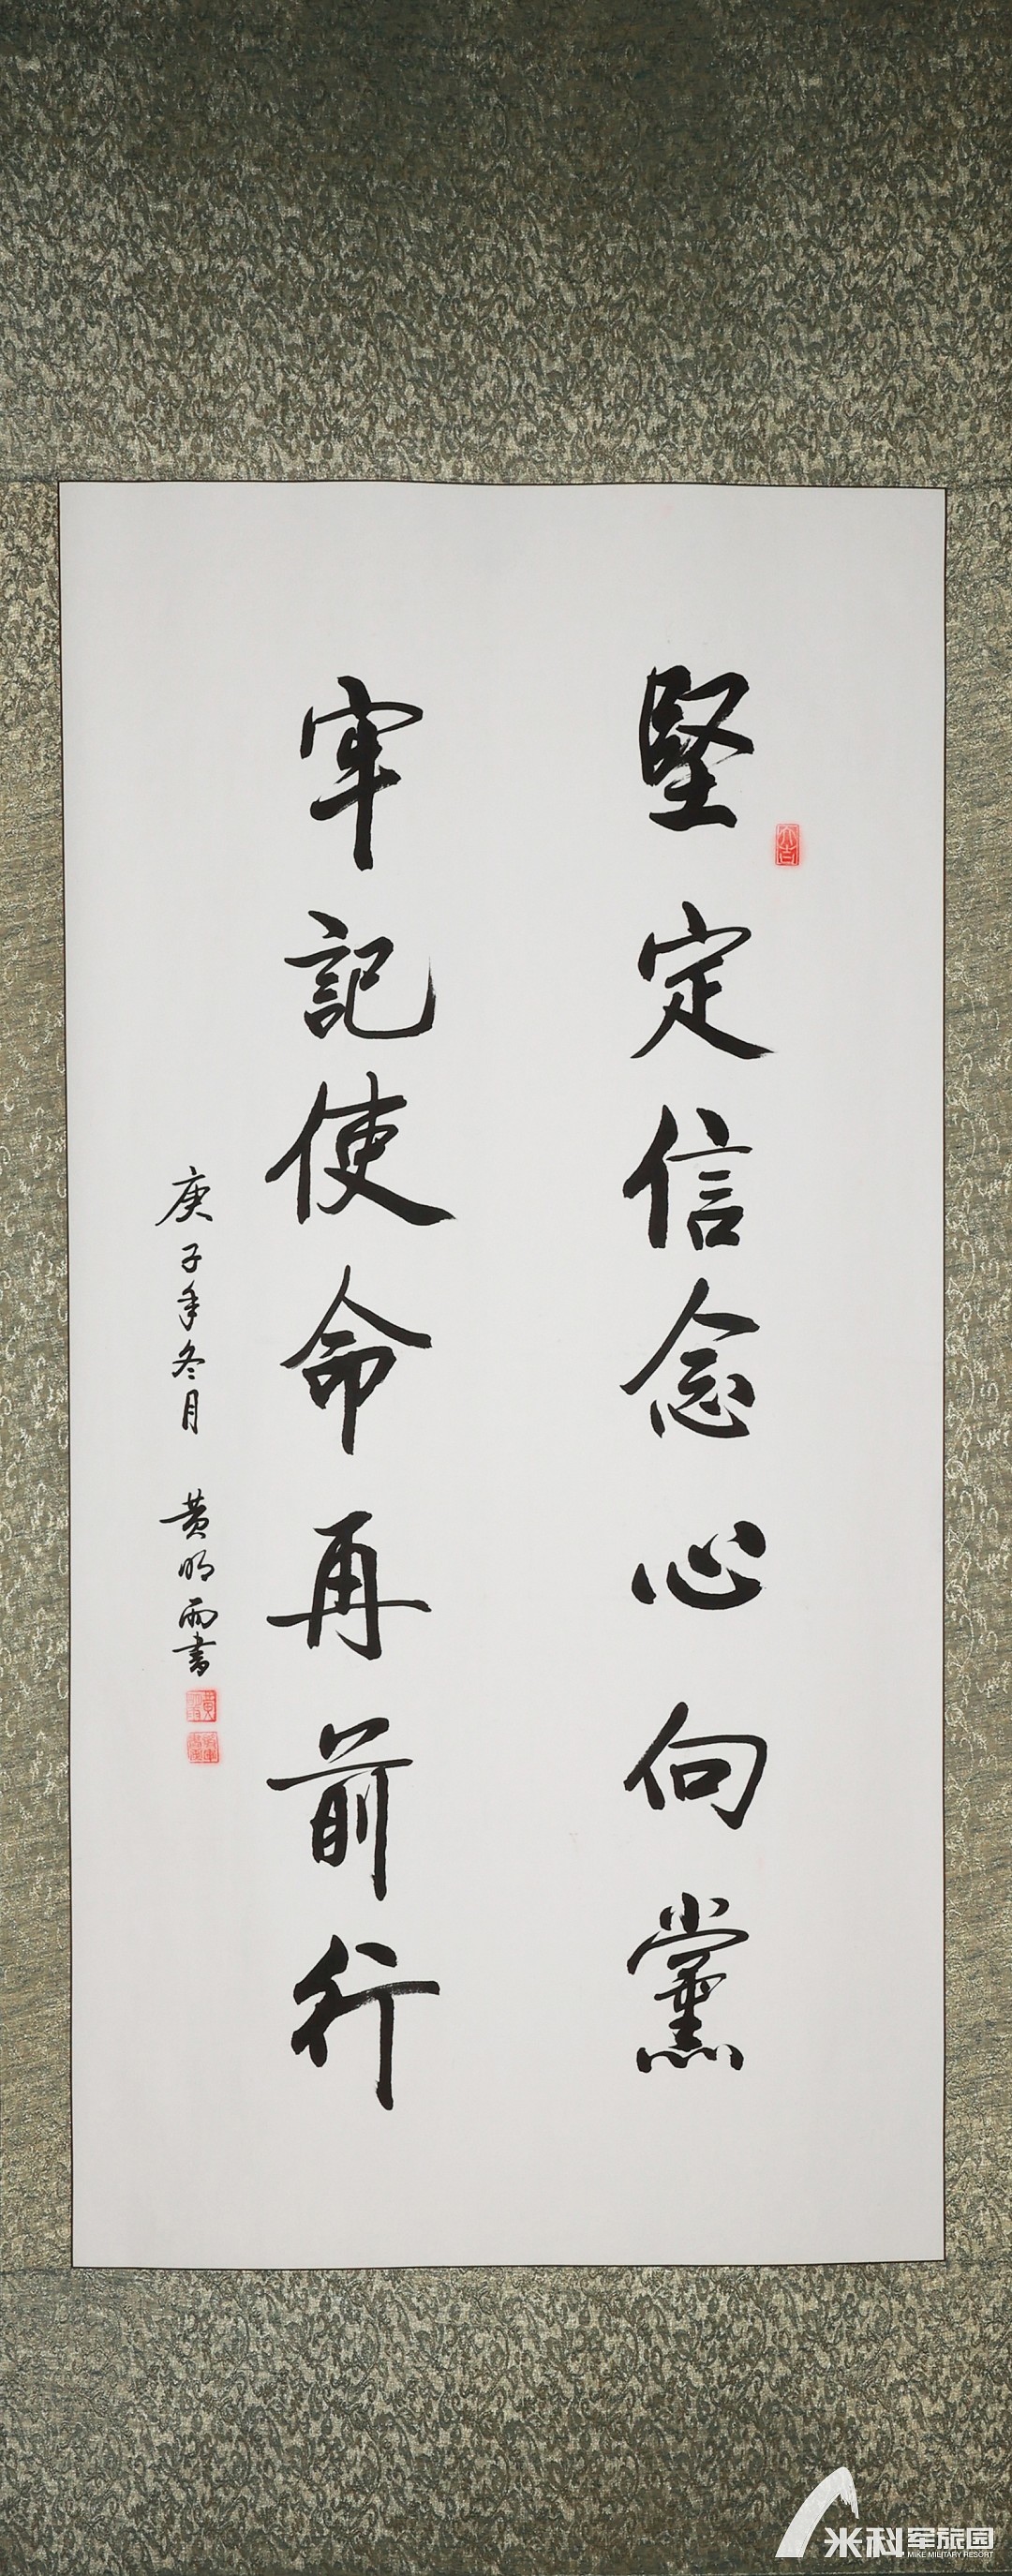 堅定信念心向黨
牢記使命再前行
庚子年冬月 黄明雨書
大吉
米科军旅园
MIKE MILITARY RESORT